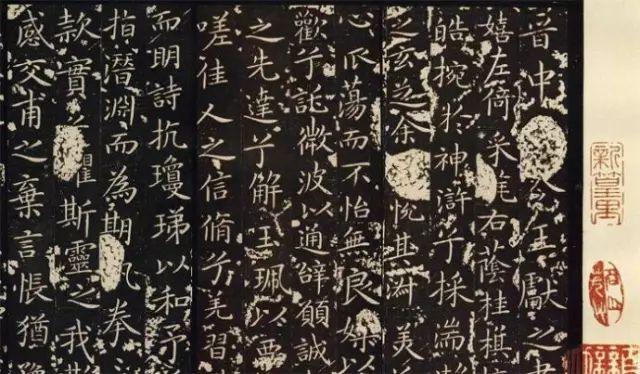 晉中令王獻之書
嬉左倚采旄右蔭桂旗
皓捥於神滸兮採湍瀨
之玄芝余悅其淑美
心振蕩而不怡無良媒
歡兮託微波以通辭願誠
之先達兮解玉珮以要
嗟佳人之信脩兮羌習
而明詩抗瓊珶以和予
指潛淵而為期執拳
款實懼斯靈之我欺
感交甫之棄言悵猶豫